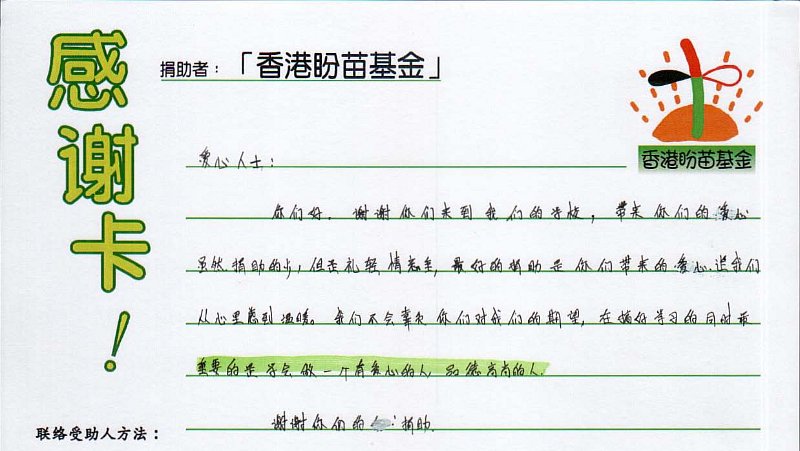 感谢卡！
捐助者：「香港盼苗基金」
香港盼苗基金
爱心人士：
你们好．谢谢你们来到我们的学校，带来你们的爱心
虽然捐助的少，但是礼轻情意重，最好的捐助是你们带来的爱心．让我们
从心里感到温暖。我们不会辜负你们对我们的期望，在搞好学习的同时最
重要的是学会做一个有爱心的人，品德高尚的人．
谢谢你们的捐助．
联络受助人方法：